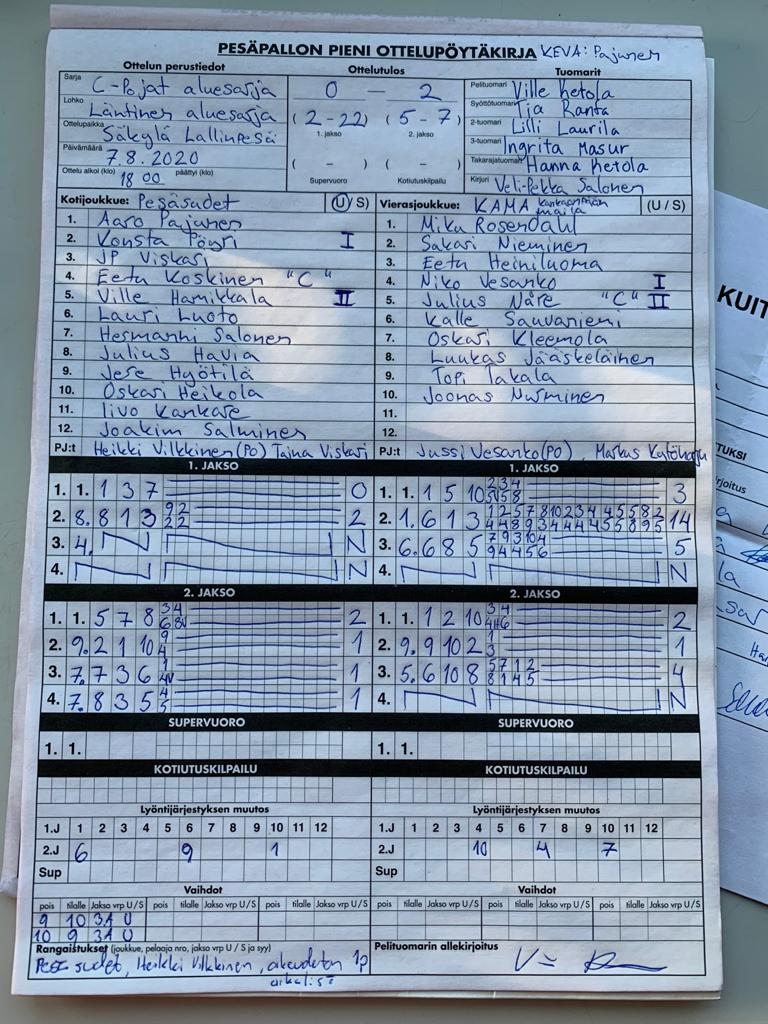 PESÄPALLON PIENI OTTELUPÖYTÄKIRJA KEVA: Pajunen
Ottelun perustiedot Ottelutulos Tuomarit
Sarja C-Pojat aluesarja
Lohko Läntinen aluesarja
Ottelupaikka Säkylä Lallinpesä
Päivämäärä 7.8.2020
Ottelu alkoi (klo) 18 00 päättyi (klo)
0 - 2
(2-22) (5-7)
1. jakso 2. jakso
( - ) ( - )
Supervuoro Kotiutuskilpailu
Pelituomari Ville Ketola
Syöttötuomari Tia Ranta
2-tuomari Lilli Laurila
3-tuomari Ingrita Masur
Takarajatuomari Hanna Ketola
Kirjuri Veli-Pekka Salonen
Kotijoukkue: Pesäsudet (U/S)
1. Aaro Pajunen
2. Konsta Pöyri I
3. JP Viskari
4. Eetu Koskinen "C"
5. Ville Hamikkala II
6. Lauri Luoto
7. Hermanni Salonen
8. Julius Havia
9. Jere Hyötilä
10. Oskari Heikola
11. Iivo Kankare
12. Joakim Salminen
PJ:t Heikki Vilkkinen (PO) Taina Viskari
Vierasjoukkue: KAMA Kankaanpään maila (U / S)
1. Mika Rosendahl
2. Sakari Nieminen
3. Eetu Heiniluoma
4. Niko Vesanko I
5. Julius Näre "C" II
6. Kalle Sauvaniemi
7. Oskari Kleemola
8. Luukas Jääskeläinen
9. Topi Takala
10. Joonas Nurminen
11.
12.
PJ:t Jussi Vesanko (PO), Markus
1. JAKSO
1. 1. 1 3 7 0
2. 8. 8 1 3 92 22 2
3. 4. N N
4. N
1. JAKSO
1. 1. 1 5 10 3
2. 1. 6 1 3 14
3. 6. 6 8 5 79310 4 94456 5
4. N
2. JAKSO
1. 1. 5 7 8 34 2
2. 9. 2 1 10 9 4 1
3. 7. 7 3 6 1
4. 7. 8 3 5 4 5 1
2. JAKSO
1. 1. 1 2 10 34 2
2. 9. 9 10 2 1 3 1
3. 5. 6 10 8 5712 8145 4
4. N
SUPERVUORO
1. 1.
SUPERVUORO
1. 1.
KOTIUTUSKILPAILU
KOTIUTUSKILPAILU
Lyöntijärjestyksen muutos
1.J 1 2 3 4 5 6 7 8 9 10 11 12
2.J 6 9 1
Sup
Lyöntijärjestyksen muutos
1.J 1 2 3 4 5 6 7 8 9 10 11 12
2.J 10 4 7
Sup
Vaihdot
pois tilalle Jakso vrp U/S pois tilalle Jakso vrp U/S pois tilalle Jakso vrp U/S
9 10 3A U
10 9 3A U
Vaihdot
pois tilalle Jakso vrp U/S pois tilalle Jakso vrp U/S pois tilalle Jakso vrp U/S
Rangaistukset (joukkue, pelaaja nro, jakso vrp U / S ja syy)
sudet, Heikki Vilkkinen, aiheudeton 1p
Pelituomarin allekirjoitus
KUIT
TUKSI
irjoitus